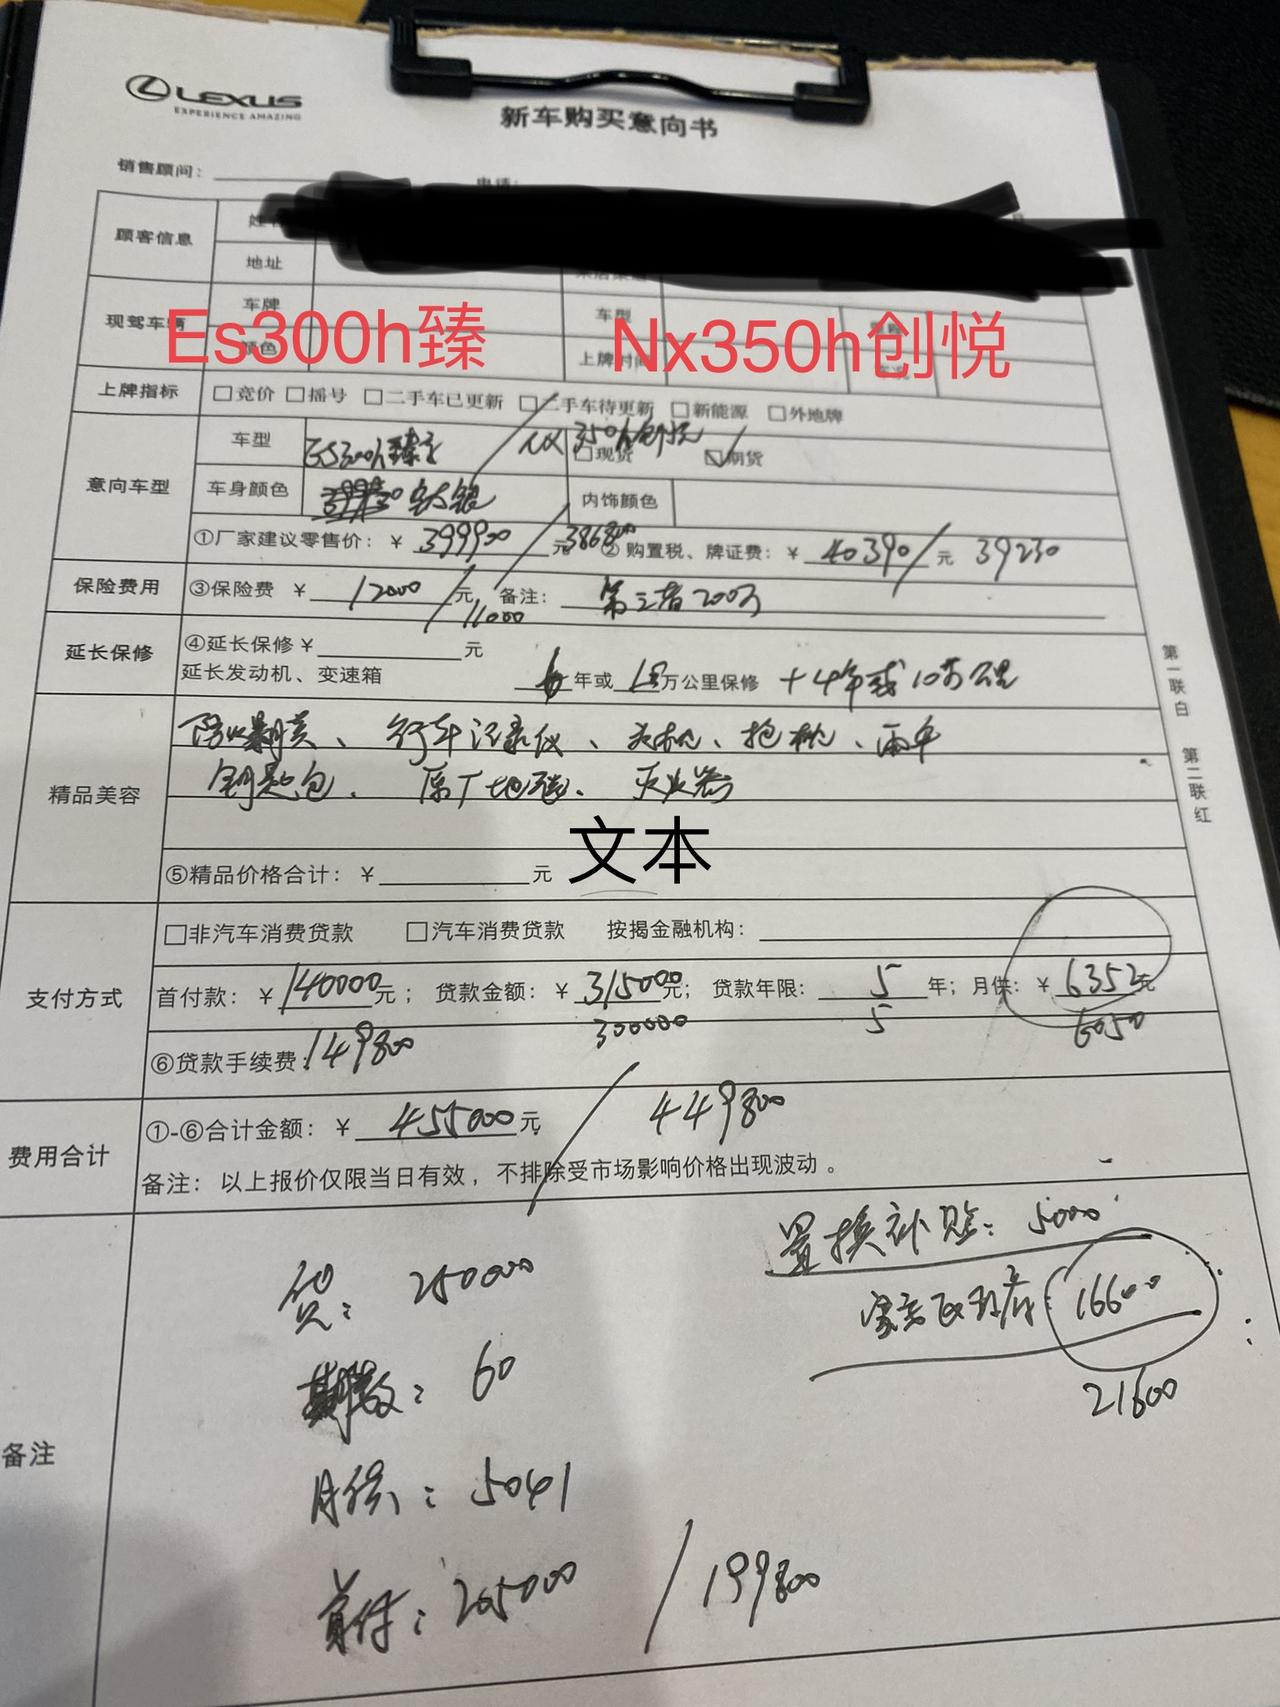 LEXUS
EXPERIENCE AMAZING
新车购买意向书
销售顾问：
顾客信息
地址
现驾车辆 车牌 车型
颜色 上牌时间
Es300h臻 Nx350h创悦
上牌指标 □竞价 □摇号 □二手车已更新 □二手车待更新 □新能源 □外地牌
意向车型 车型 ES300h臻 / NX 350h创悦 □现货 ☑期货
车身颜色 银 内饰颜色
①厂家建议零售价：￥399900元 / 386800 ②购置税、牌证费：￥40390 / 元 39230
保险费用 ③保险费 ￥12000 / 元 11000 备注：第三者200万
延长保修 ④延长保修￥ 元
延长发动机、变速箱 6年或 万公里保修 +4年或10万公里
精品美容 行车记录仪、头枕、抱枕、雨伞
钥匙包、原厂地毯、灭火器
文本
⑤精品价格合计：￥ 元
支付方式 □非汽车消费贷款 □汽车消费贷款 按揭金融机构：
首付款：￥140000元；贷款金额：￥315000元；贷款年限：5年；月供：￥6352元
149800 300000 5 6050
⑥贷款手续费：
费用合计 ①-⑥合计金额：￥455000元 / 449800
备注：以上报价仅限当日有效，不排除受市场影响价格出现波动。
第一联白 第二联红
备注
置换补贴：5000
16600
21600
贷：250000
期数：60
月供：5041
首付：205000 / 199800